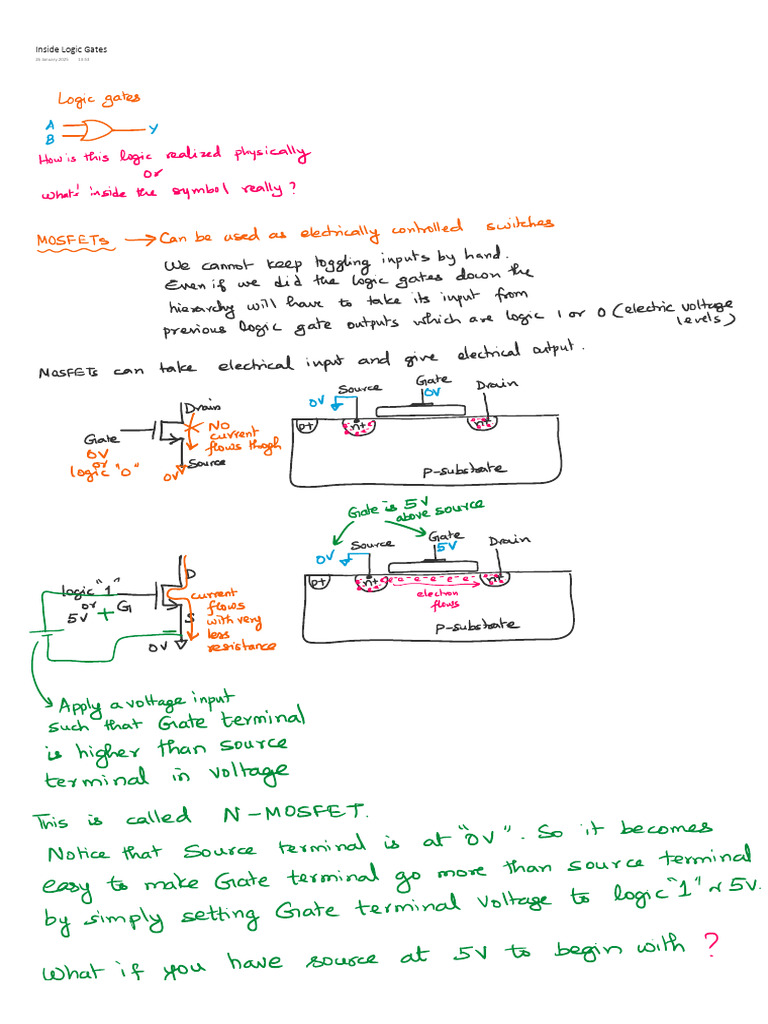 Inside Logic Gates
Logic gates
A
B
Y
How is this logic realized physically
or
What's inside the symbol really?
MOSFETs → Can be used as electrically controlled switches
We cannot keep toggling inputs by hand.
Even if we did the logic gates down the
hierarchy will have to take its input from
previous logic gate outputs which are logic 1 or 0 (electric voltage
levels)
MOSFETs can take electrical input and give electrical output.
Drain
No
current
flows thogh
Gate
0V
or
logic "0"
Source
0V
Source
0V
Gate
0V
Drain
p+
n+
n+
P-substrate
Gate is 5V
above source
logic "1"
or
5V
+
G
D
S
-
0V
current
flows
with very
less
resistance
Source
0V
Gate
5V
Drain
p+
n+
e- e- e- e- e-
n+
electron
flows
P-substrate
Apply a voltage input
such that Gate terminal
is higher than source
terminal in voltage
This is called N-MOSFET.
Notice that Source terminal is at "0V". So it becomes
easy to make Gate terminal go more than source terminal
by simply setting Gate terminal voltage to logic "1" ~ 5V.
What if you have source at 5V to begin with ?